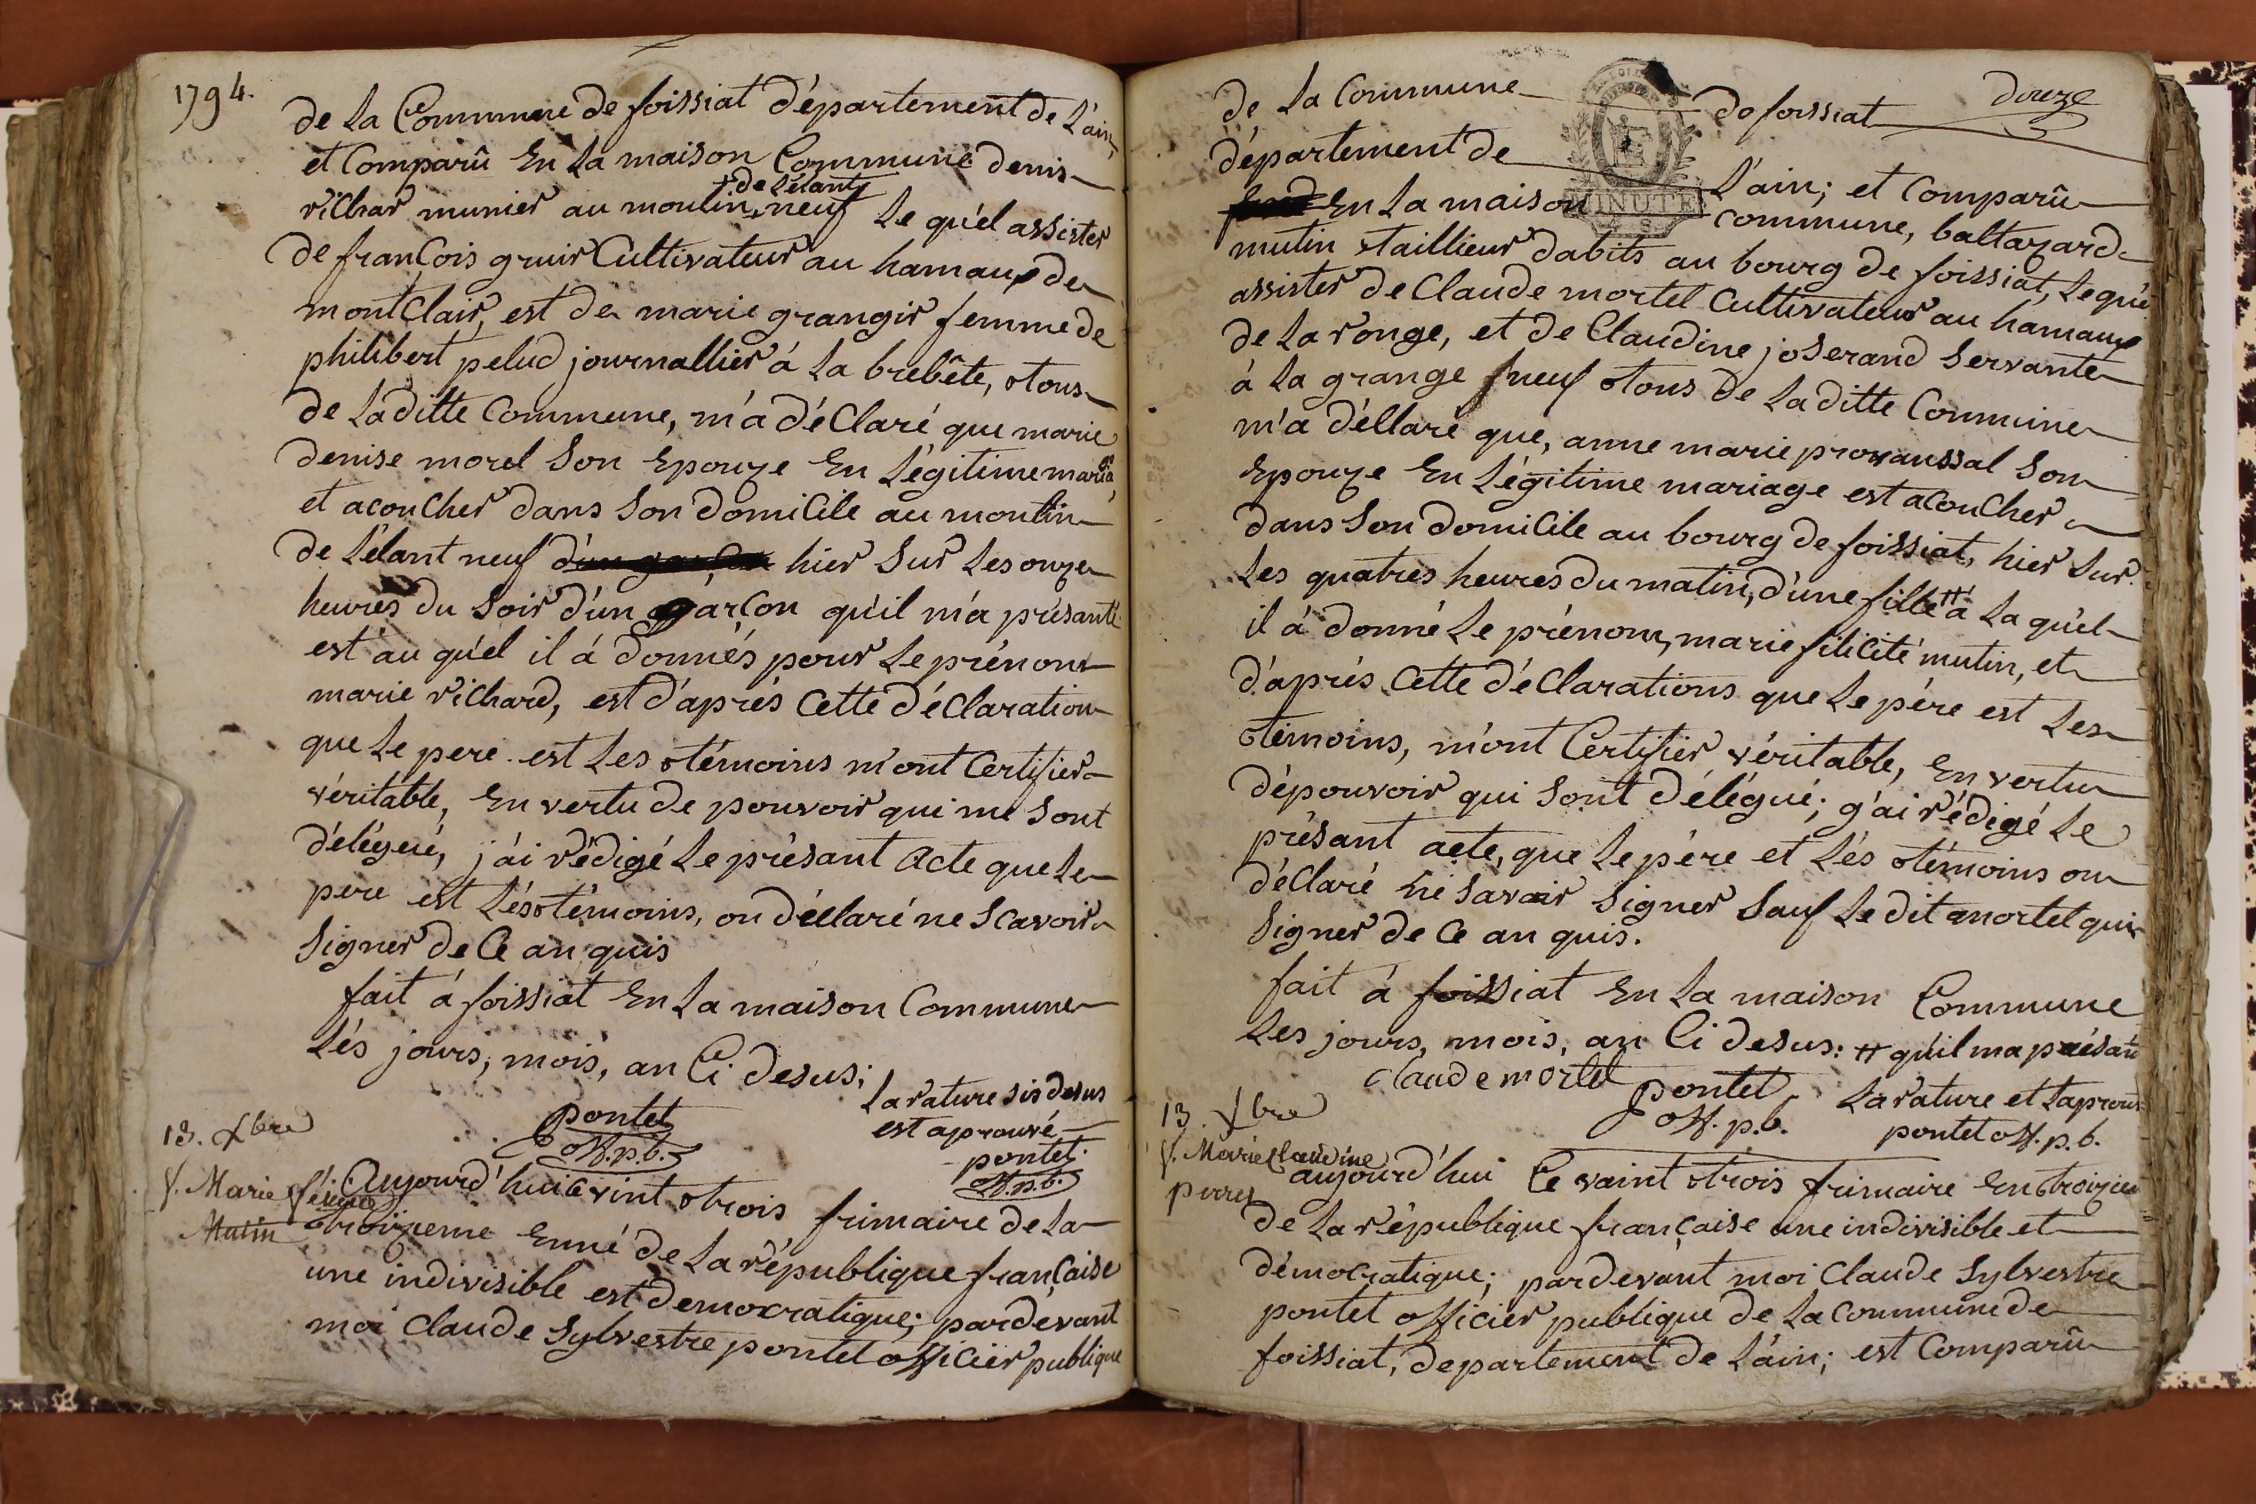 1794.
de La Commune de foissiat d'épartement de L'ain,
et Comparû En La maison Commune denis
richar munier au moulin + neuf Le qu'el assister
+ de L'étant
de franCois gruir Cultivateur au hamaux de
montClair, est de marie grangir femme de
philibert pelud journallier á La brebête, tous
de Laditte Commune, m'a d'éClaré que marie
denise morel Son Epouze En Légitime maria
et acouCher dans Son domiCile au moulin
de L'étant neuf d'un garçon hier Sur Les onze
heures du Soir d'un garçon qu'il m'a présanté
est au qu'el il á donnés pour Le prénom
marie riChard, est d'aprés Cette d'éClaration
que Le pere est Les témoins m'ont Certifier
véritable, En vertu de pouvoir qui me Sont
d'élégué, j'ai rédigé Le présant Acte que Le
pere est Lés témoins, on d'éClaré ne Scavoir
Signer de Ce an quis
fait á foissiat En La maison Commune
Lés jours, mois, an Ci desus;
pontet
off. p. b.
La rature sis desus
est aprouvé
pontet.
off. p. b.
13. xbre
f. Marie félicité
Mutin
Aujourd'hui Ce vint trois frimaire de La
troizieme Enné de La république française
une indivisible est démocratique; pardevant
moi Claude Sylvestre pontet officier publique
douze
de La Commune de foissiat
département de L'ain; et Comparû
En La maison Commune, baltazard
MINUTE
mutin taillieur dabits au bourg de foissiat, Le qu'e
assister de Claude mortel Cultivateur au hamaux
de La ronge, et de Claudine joserand Servante
á La grange neuf tous de Laditte Commune
m'a d'éllaré que, anne marie provanssal Son
Epouze En Légitime mariage est acouCher
dans Son domiCile au bourg de foissiat, hier Sur
Les quatres heures du matin, d'une fille # á La qu'el
il á donné Le prénom, marie féliCité mutin, et
d'aprés Cette d'éClarations que Le pére est Les
témoins, m'ont Certifier véritable, En vertu
dépouvoir qui Sont d'élégué; g'ai rédigé Le
présant acte, que Le pére et Lés témoins on
d'éClaré né Savoir Signer Sauf Le dit mortel qui
Signer de Ce an quis.
fait á foissiat En La maison Commune
Les jours, mois, an Ci desus: # qu'il ma présan
Claude mortel
pontet
off. p. b.
La rature et Laprouv
pontet off. p. b.
13 xbre
f. Marie Claudine
perret
aujourd'hui Ce vaint trois frimaire En troizieu
de La république française une indivisible et
démoCratique; pardevant moi Claude Sylvestre
pontet officier publique de La Commune de
foissiat, département de L'ain; est Comparû